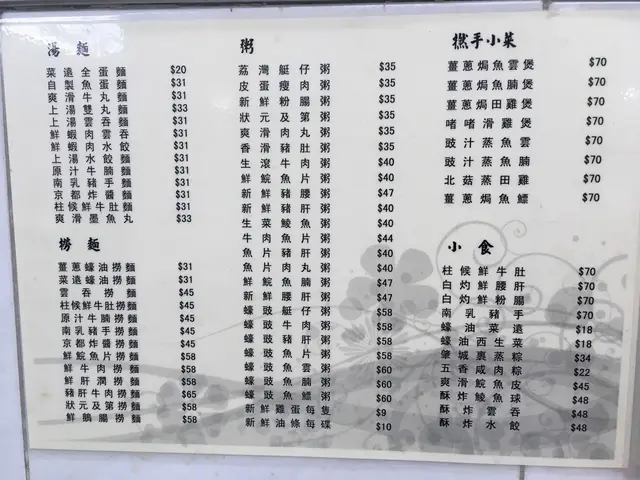 湯麵
菜遠全蛋麵 $20
自製魚蛋麵 $31
爽滑牛丸麵 $31
上湯雙丸麵 $33
上湯雲吞麵 $31
鮮蝦肉雲吞 $31
鮮蝦肉水餃 $31
上湯水餃麵 $31
原汁牛腩麵 $31
南乳豬手麵 $31
京都炸醬麵 $31
柱候鮮牛肚麵 $31
爽滑墨魚丸 $33
撈麵
薑蔥蠔油撈麵 $31
菜遠蠔油撈麵 $31
雲吞撈麵 $45
柱候鮮牛肚撈麵 $45
原汁牛腩撈麵 $45
南乳豬手撈麵 $45
京都炸醬撈麵 $45
鮮鯇魚片撈麵 $58
鮮牛肉撈麵 $58
鮮肝潤撈麵 $58
豬肝牛肉撈麵 $65
狀元及第撈麵 $58
鮮鵝腸撈麵 $58
粥
荔灣艇仔粥 $35
皮蛋瘦肉粥 $35
新鮮粉腸粥 $35
狀元及第粥 $35
爽滑肉丸粥 $35
香滑豬肚粥 $35
生滾牛肉粥 $40
鮮鯇魚片粥 $40
新鮮豬腰粥 $47
新鮮豬肝粥 $40
生菜鯪魚粥 $40
牛肉魚片粥 $44
魚片豬肝粥 $40
魚片肉丸粥 $40
鮮鯇魚腩粥 $47
新鮮腰肝粥 $47
蠔豉艇仔粥 $58
蠔豉牛肉粥 $58
蠔豉豬肝粥 $58
蠔豉魚片粥 $58
蠔豉魚雲粥 $60
蠔豉魚腩粥 $60
蠔豉魚鰾粥 $60
新鮮雞蛋每隻 $9
新鮮油條每碟 $10
撚手小菜
薑蔥焗魚雲煲 $70
薑蔥焗魚腩煲 $70
薑蔥焗田雞煲 $70
啫啫滑雞煲 $70
豉汁蒸魚雲 $70
豉汁蒸魚腩 $70
北菇蒸田雞 $70
薑蔥焗魚鰾 $70
小食
柱候鮮牛肚 $70
白灼鮮豬肝 $70
白灼鮮粉腸 $70
南乳豬手 $70
蠔油菜遠 $18
蠔油西生菜 $18
肇城裹蒸粽 $34
五香咸肉粽 $22
爽滑鯇魚皮 $45
酥炸鯪魚球 $48
酥炸雲吞 $48
酥炸水餃 $48